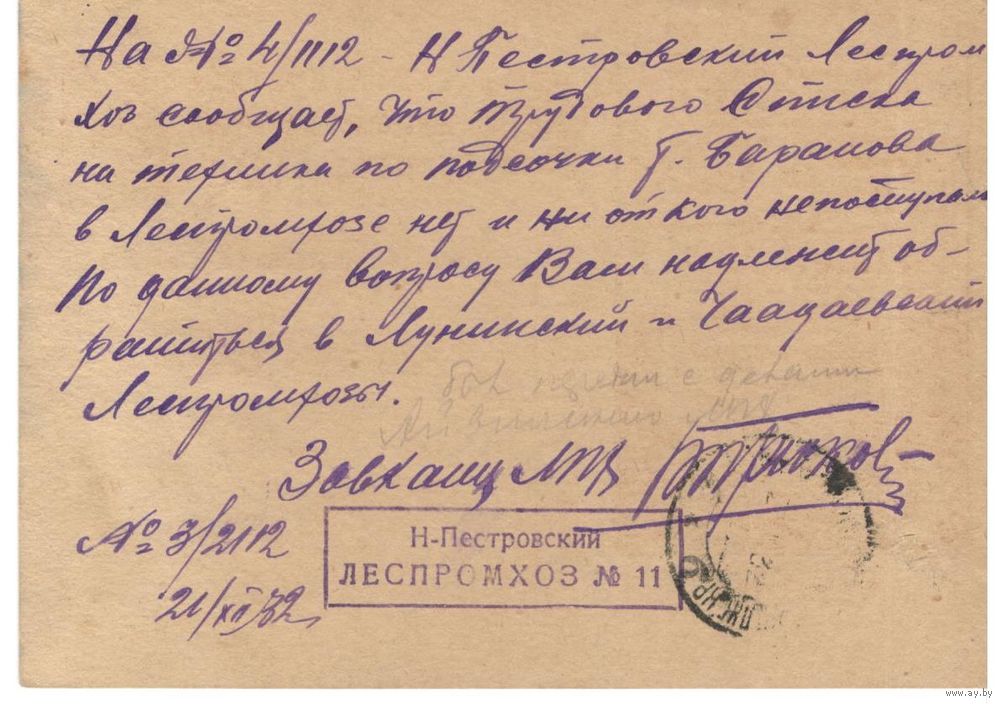 На № 4/1112 - Н Пестровский Леспром
хоз сообщает, что трудового Списка
на техника по подсочки т. Баранова
в Леспромхозе нет и ни от кого непоступал
По данному вопросу Вам надлежит об-
ратиться в Лунинский и Чаадаевский
Леспромхозы.
с делами
Завканц ЛПХ
№ 3/2112
21/XII 32
Н-Пестровский
ЛЕСПРОМХОЗ № 11
www.ay.by